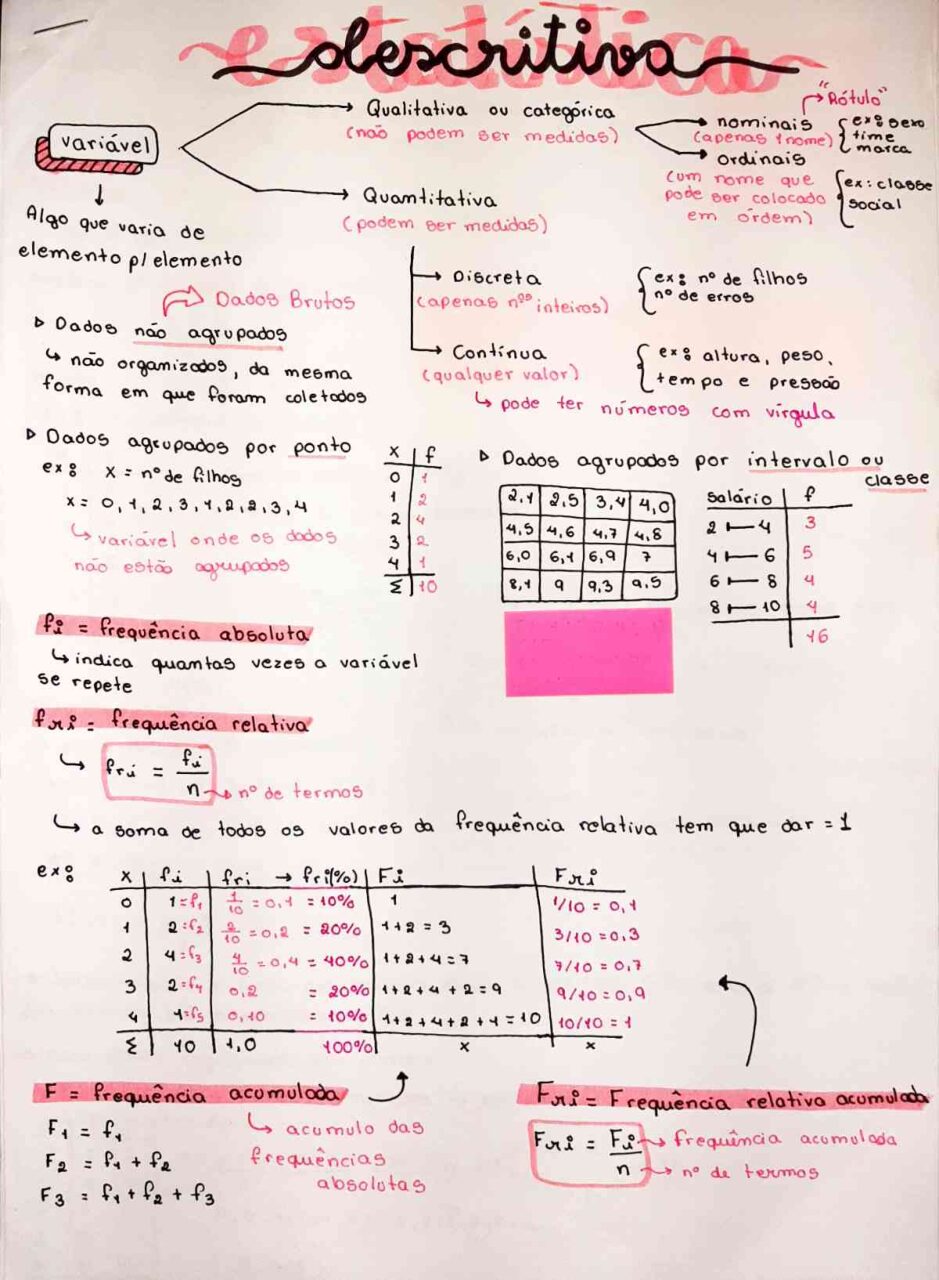 estatística
descritiva
variável
Algo que varia de
elemento p/ elemento
→ Qualitativa ou categórica
(não podem ser medidas)
→ nominais → "Rótulo"
(apenas 1 nome)
{ ex: sexo
time
marca
→ ordinais
(um nome que
pode ser colocado
em órdem)
{ ex: classe
social
→ Quantitativa
(podem ser medidas)
→ Discreta
(apenas nºs inteiros)
{ ex: nº de filhos
nº de erros
→ Contínua
(qualquer valor)
{ ex: altura, peso,
tempo e pressão
↳ pode ter números com vírgula
Dados Brutos
▹ Dados não agrupados
↳ não organizados, da mesma
forma em que foram coletados
▹ Dados agrupados por ponto
ex: X = nº de filhos
x = 0, 1, 2, 3, 1, 2, 2, 3, 4
↳ variável onde os dados
não estão agrupados
x | f
0 | 1
1 | 2
2 | 4
3 | 2
4 | 1
Σ | 10
▹ Dados agrupados por intervalo ou
classe
2,1 | 2,5 | 3,4 | 4,0
4,5 | 4,6 | 4,7 | 4,8
6,0 | 6,1 | 6,9 | 7
8,1 | 9 | 9,3 | 9,5
Salário | f
2 ⊢ 4 | 3
4 ⊢ 6 | 5
6 ⊢ 8 | 4
8 ⊢ 10 | 4
16
fi = frequência absoluta
↳ indica quantas vezes a variável
se repete
fri = frequência relativa
↳ fri = fi/n → nº de termos
↳ a soma de todos os valores da frequência relativa tem que dar = 1
ex:
x | fi | fri → fri(%) | Fi | Fri
0 | 1=f1 | 1/10 = 0,1 = 10% | 1 | 1/10 = 0,1
1 | 2=f2 | 2/10 = 0,2 = 20% | 1+2 = 3 | 3/10 = 0,3
2 | 4=f3 | 4/10 = 0,4 = 40% | 1+2+4 = 7 | 7/10 = 0,7
3 | 2=f4 | 0,2 = 20% | 1+2+4+2 = 9 | 9/10 = 0,9
4 | 1=f5 | 0,10 = 10% | 1+2+4+2+1 = 10 | 10/10 = 1
Σ | 10 | 1,0 100% | x | x
F = frequência acumulada
↳ acumulo das
frequências
absolutas
F1 = f1
F2 = f1 + f2
F3 = f1 + f2 + f3
Fri = Frequência relativa acumulada
Fri = Fi/n → frequência acumulada
→ nº de termos